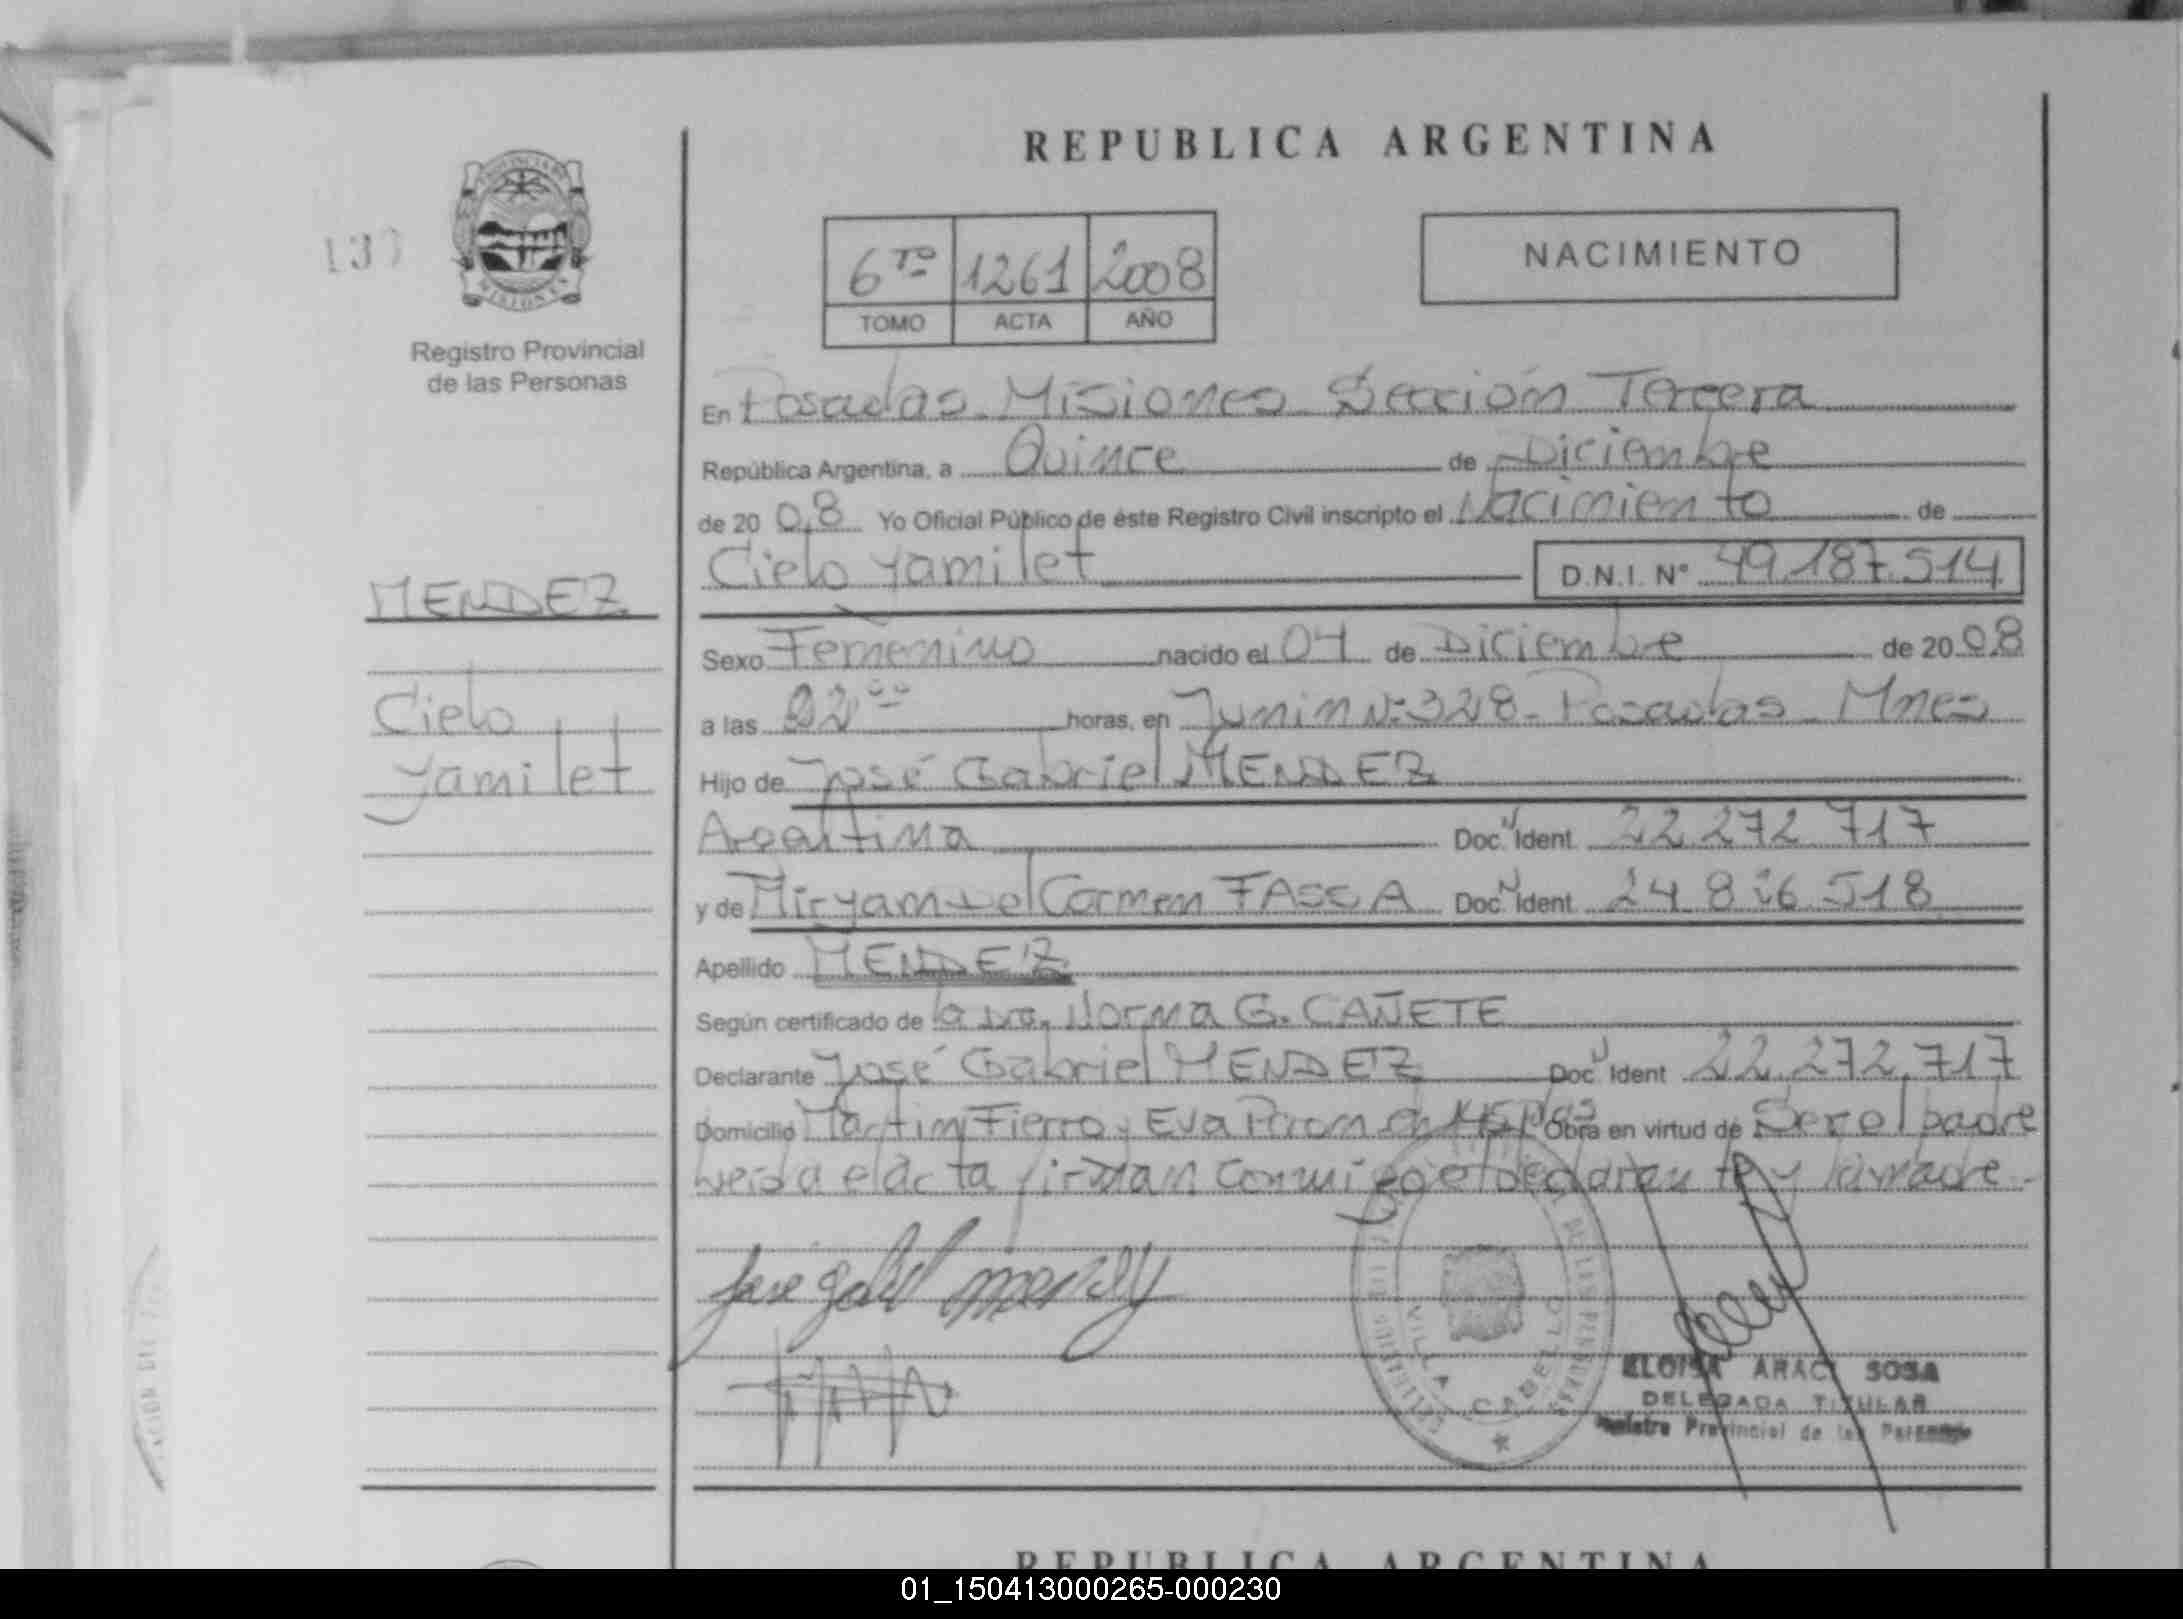 REPUBLICA ARGENTINA
PROVINCIA DE
MISIONES
137
Registro Provincial
de las Personas
NACIMIENTO
6TO 1261 2008
TOMO ACTA AÑO
En Posadas Misiones Sección Tercera
República Argentina, a Quince de Diciembre
de 20 08 Yo Oficial Público de éste Registro Civil inscripto el Nacimiento de
Cielo Yamilet D.N.I. N° 49.187.514
MENDEZ
Cielo
Yamilet
Sexo Femenino nacido el 04 de Diciembre de 20 08
a las 22 00 horas, en Junin N: 328 - Posadas - Mnes
Hijo de José Gabriel MENDEZ
Argentina Doc. Ident. 22 272 717
y de Miryam del Carmen Doc. Ident. 24 826 518
Apellido MENDEZ
Según certificado de la Dra. Norma G. CAÑETE
Declarante José Gabriel MENDEZ Doc. Ident 22.272.717
Domicilio Martin Fierro y Eva Peron Obra en virtud de Ser el padre
leida el acta firman conmigo el declarante y la madre -
José Gabriel
VILLA CABELLO
ELOISA ARACI SOSA
DELEGADA TITULAR
Registro Provincial de las Personas
REPUBLICA ARGENTINA
01_150413000265-000230